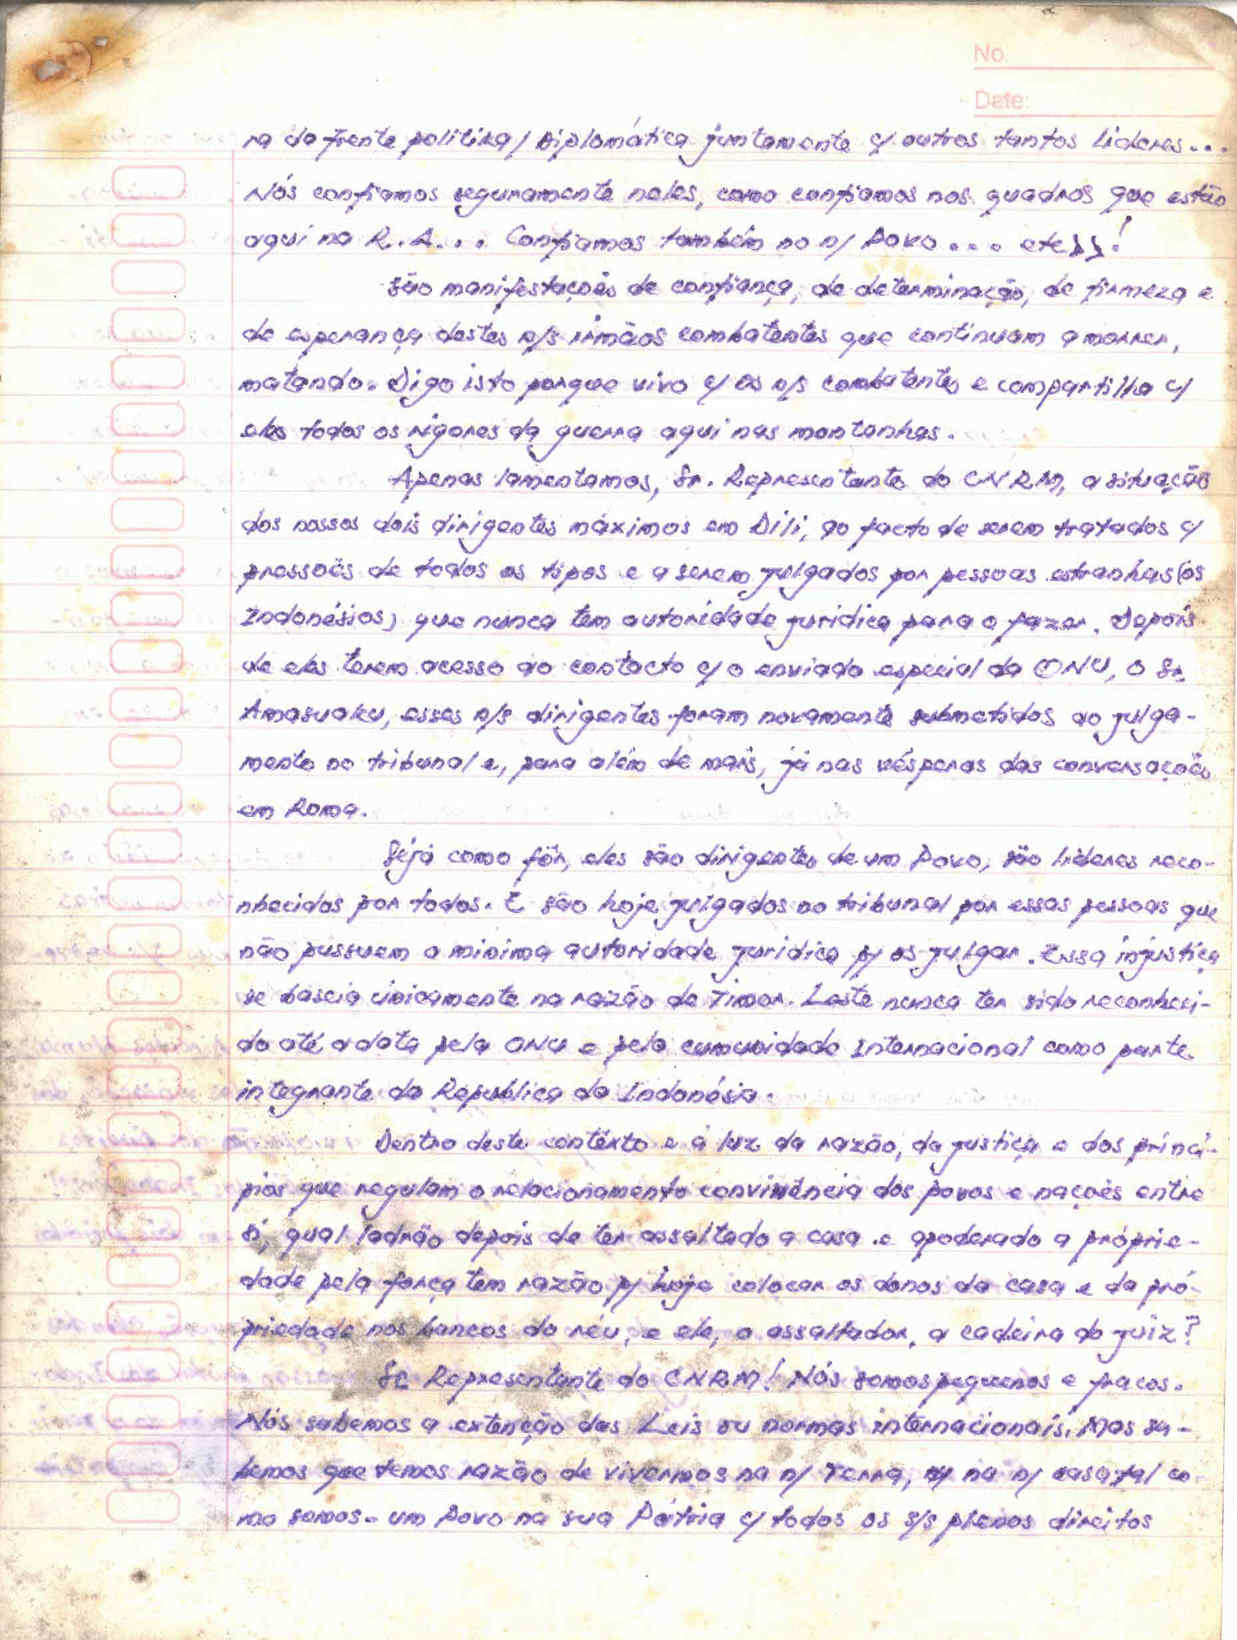 No.
Date:
ra da frente politika/Diplomática juntamente c/ outros tantos lideres...
Nós confiamos seguramente neles, como confiamos nos quadros que estão
aqui na R.A... Confiamos também no n/ Povo... etc}}!
São manifestações de confiança, de determinação, de firmeza e
de esperança destes n/s irmãos combatentes que continuam a morrer,
matando. Digo isto porque vivo c/ os n/s combatentes e compartilho c/
eles todos os rigores da guerra aqui nas montanhas.
Apenas lamentamos, Sr. Representante do CNRM, a situação
dos nossos dois dirigentes máximos em Dili, ao facto de serem tratados c/
pressoẽs de todos os tipos e a serem julgados por pessoas estranhas (os
Indonésios) que nunca têm autoridade juridica para o fazer. Depois
de eles terem acesso ao contacto c/ o enviado especial da ONU, o Sr.
Amasuaku, esses n/s dirigentes foram novamente submetidos ao julga-
mento no tribunal e, para além de mais, já nas vésperas das conversações
em Roma.
Sejá como fôr, eles são dirigentes de um Povo, são lideres reco-
nhecidos por todos. E são hoje julgados no tribunal por essas pessoas que
não possuem a minima autoridade juridica p/ os julgar. Essa injustiça
se baseia únicamente na razão de Timor-Leste nunca ter sido reconheci-
do até a data pela ONU e pela comunidade Internacional como parte
integrante da Républica da Indonésia.
Dentro deste contêxto e á luz da razão, da justiça e dos princí-
pios que regulam o relacionamento convivência dos povos e nações entre
si, qual ladrão depois de ter assaltado a casa e apoderado a próprie-
dade pela força tem razão p/ hoje colocar os donos da casa e da pró-
priedade nos bancos do réu, e ele, o assaltador, a cadeira do juiz?
Sr. Representante do CNRM! Nós somos pequenos e fracos.
Nós sabemos a extenção das Leis ou normas internacionais. Mas sa-
bemos que temos razão de vivermos na n/ Terra, na n/ casa, tal co
mo somos - um Povo na sua Pátria c/ todos os s/s plenos direitos